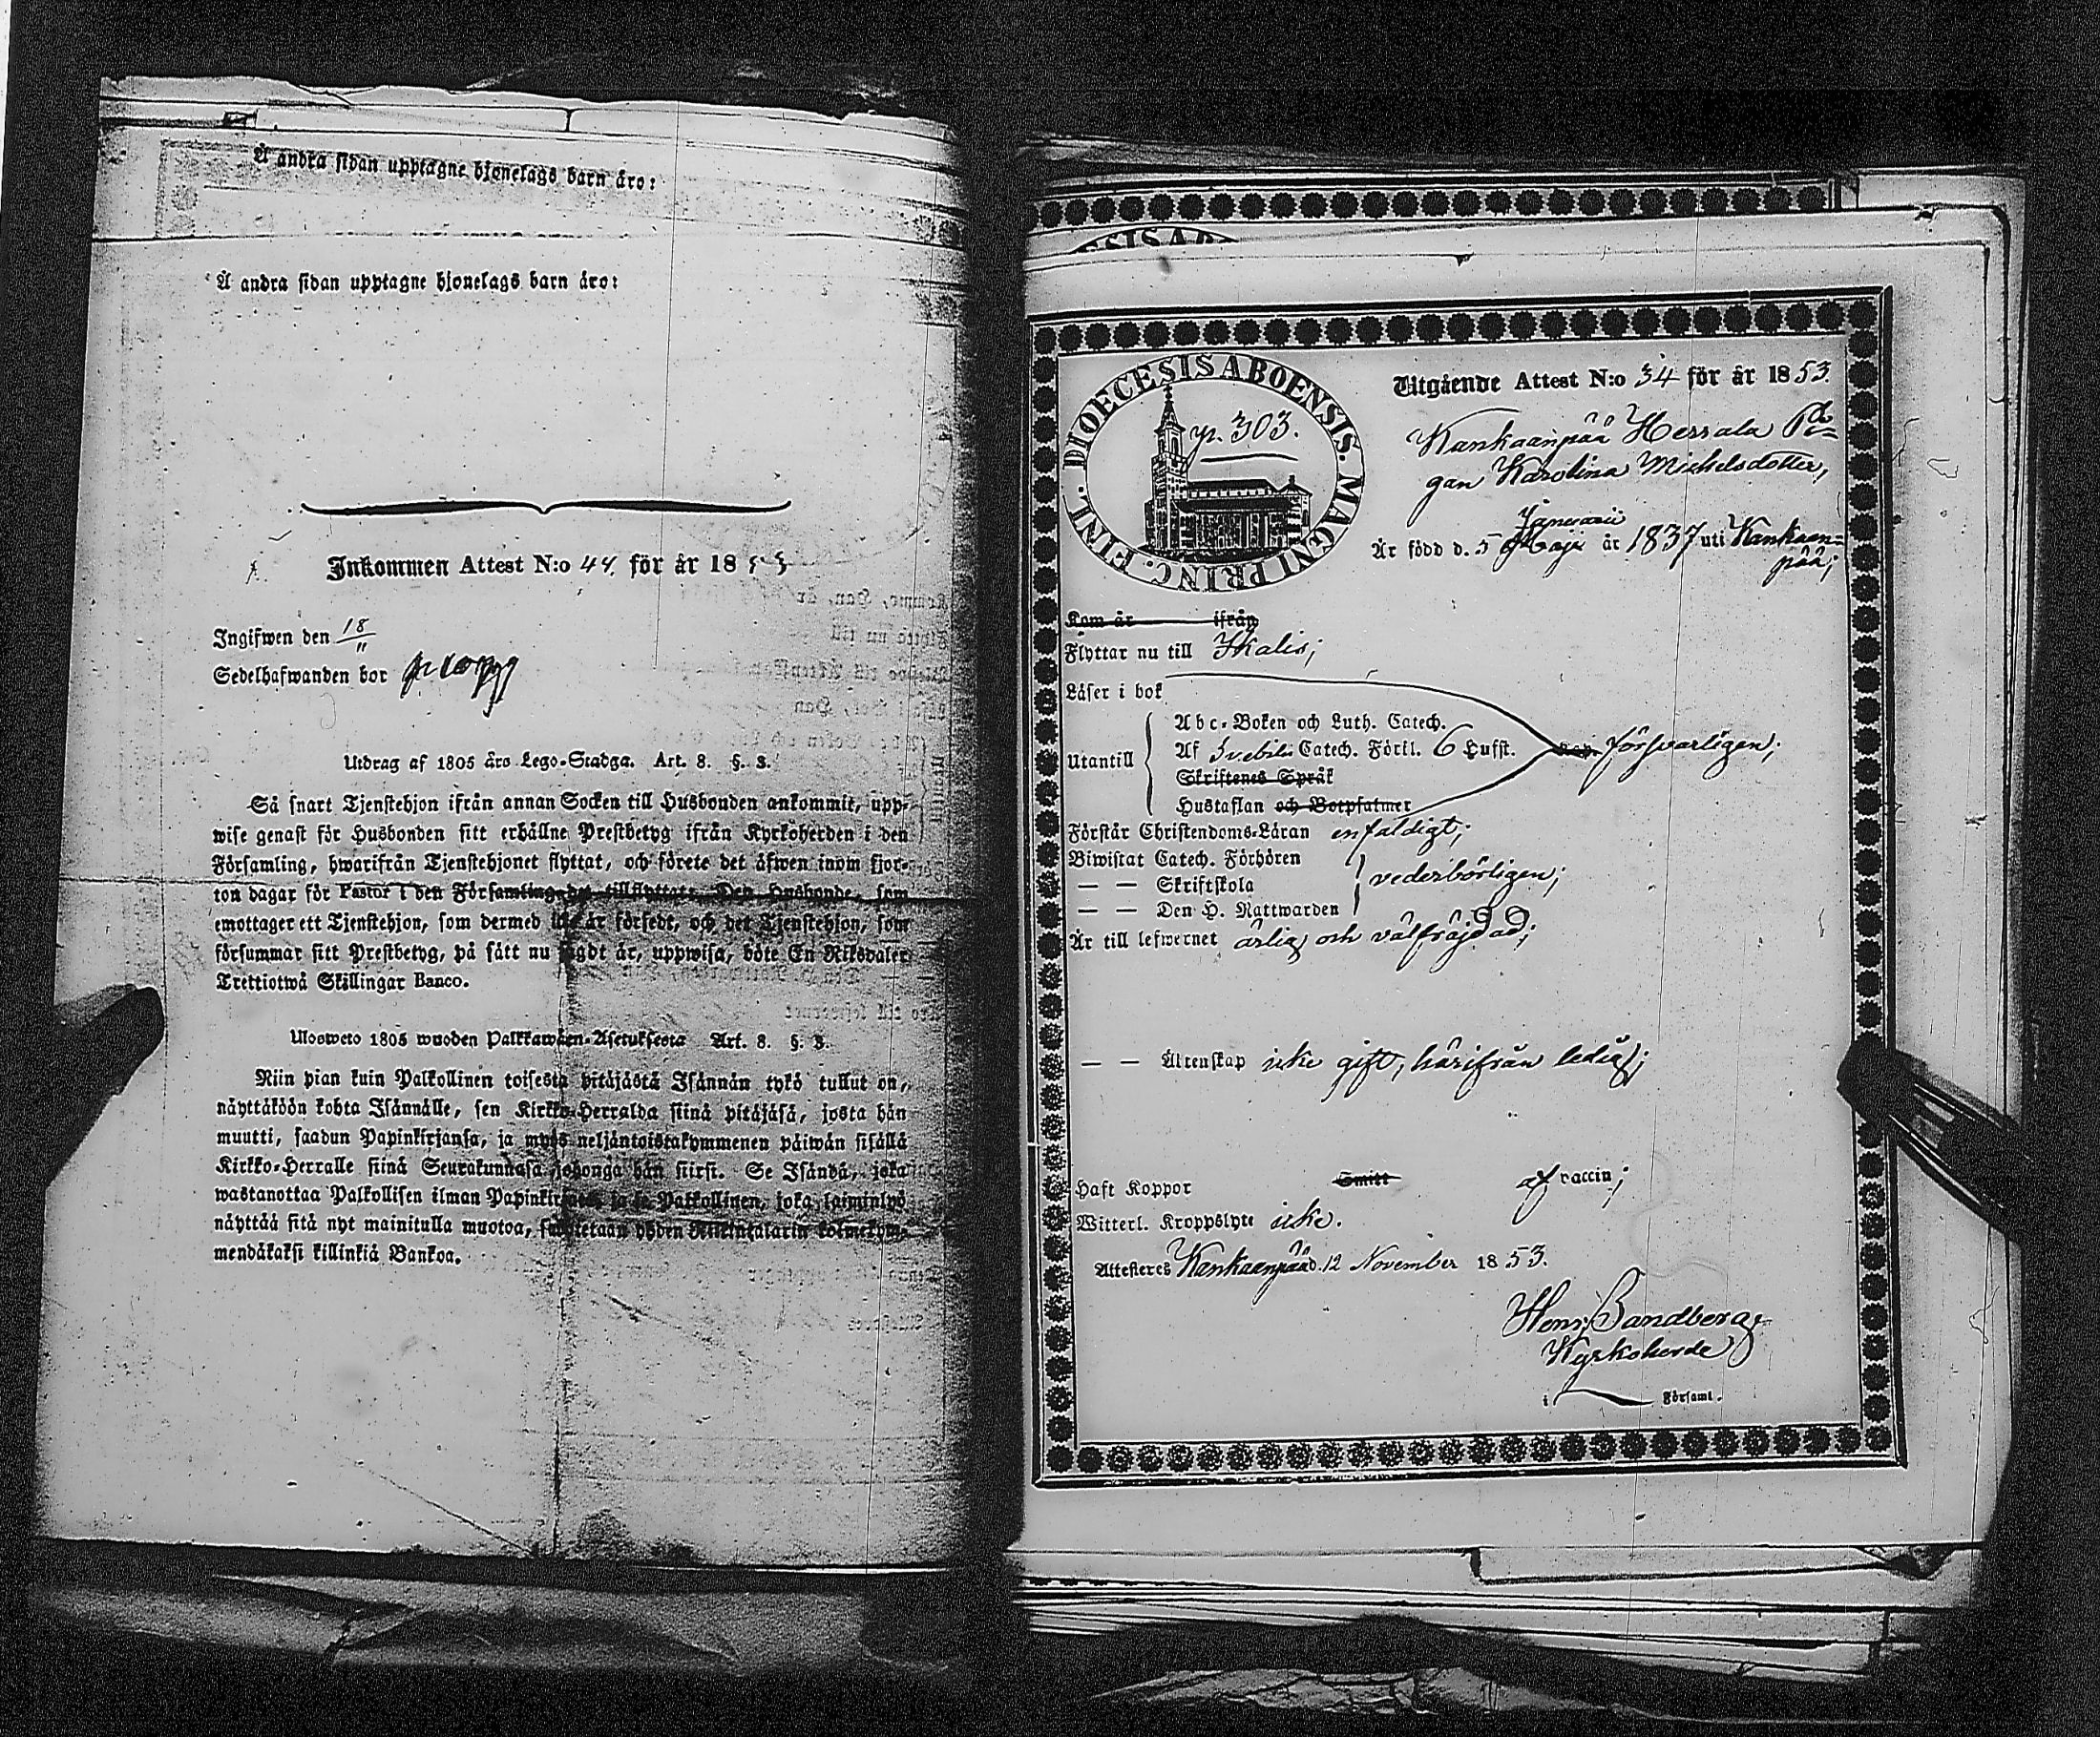 Å andra sidan upptagne hjonelags barn äro:
Å andra sidan upptagne hjonelags barn äro:
Inkommen Attest N:o 44. för år 1853
Ingifwen den 18/11
Sedelhafwanden bor
Utdrag af 1805 års Lego-Stadga. Art. 8. §. 3.
Så snart Tjenstehjon ifrån annan Socken till Husbonden ankommit, upp-
wise genast för Husbonden sitt erhållne Prestbetyg ifrån Kyrkoherden i den
Församling, hwarifrån Tjenstehjonet flyttat, och förete det äfwen inom fjor-
ton dagar för Pastor i den Församling det tillflyttat. Den Husbonde, som
emottager ett Tjenstehjon, som dermed icke är försedt, och det Tjenstehjon, som
försummar sitt Prestbetyg, på sätt nu sagdt är, uppwisa, böte En Riksdaler
Trettiotwå Skillingar Banco.
Ulosweto 1805 wuoden Palkkawäen-Asetuksesta Art. 8. §. 3.
Niin pian kuin Palkollinen toisesta pitäjästä Isännän tykö tullut on,
näyttäköön kohta Isännälle, sen Kirkko-Herralda siinä pitäjäsä, josta hän
muutti, saadun Papinkirjansa, ja myös neljäntoistakymmenen päiwän sisällä
Kirkko-Herralle siinä Seurakunnasa johonga hän siirsi. Se Isändä, joka
wastanottaa Palkollisen ilman Papinkirjata, ja se Palkollinen, joka laiminlyö
näyttää sitä nyt mainitulla muotoa, sakotetaan yhden Riikintalarin kolmekym-
mendäkaksi killinkiä Bankoa.
DIOECESIS ABOENSIS. MAGNI PRINC. FINL.
p. 303.
Utgående Attest N:o 34 för år 1853.
Kankaanpää Herrala Pi-
gan Karolina Michelsdotter,
Januarii
Är född d. 5 Maji år 1837 uti Kankaan-
pää;
Kom år ifrån
Flyttar nu till Ikalis;
Läser i bok
Abc-Boken och Luth. Catech.
Utantill Af Svebilii Catech. Förkl. 6 Hufst. försvarligen;
Skriftenes Språk
Hustaflan och Botpsalmer
Förstår Christendoms-Läran enfaldigt;
Biwistat Catech. Förhören
— — Skriftskola vederbörligen;
— — Den H. Nattwarden
Är till lefwernet ärlig och välfräjdad;
— — Äktenskap icke gift, härifrån ledig;
Haft Koppor Smitt af vaccin;
Witterl. Kroppslyte icke.
Attesteres Kankaanpää d. 12 November 1853.
Henr. Sandberg
Kyrkoherde
i Församl.